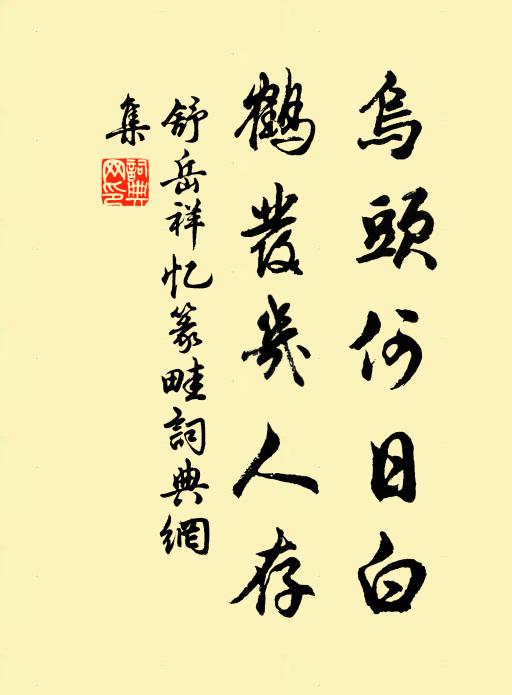 烏頭何日白
鶴髮幾人存
舒岳祥忆篆畦詞典網
集
詞典網印